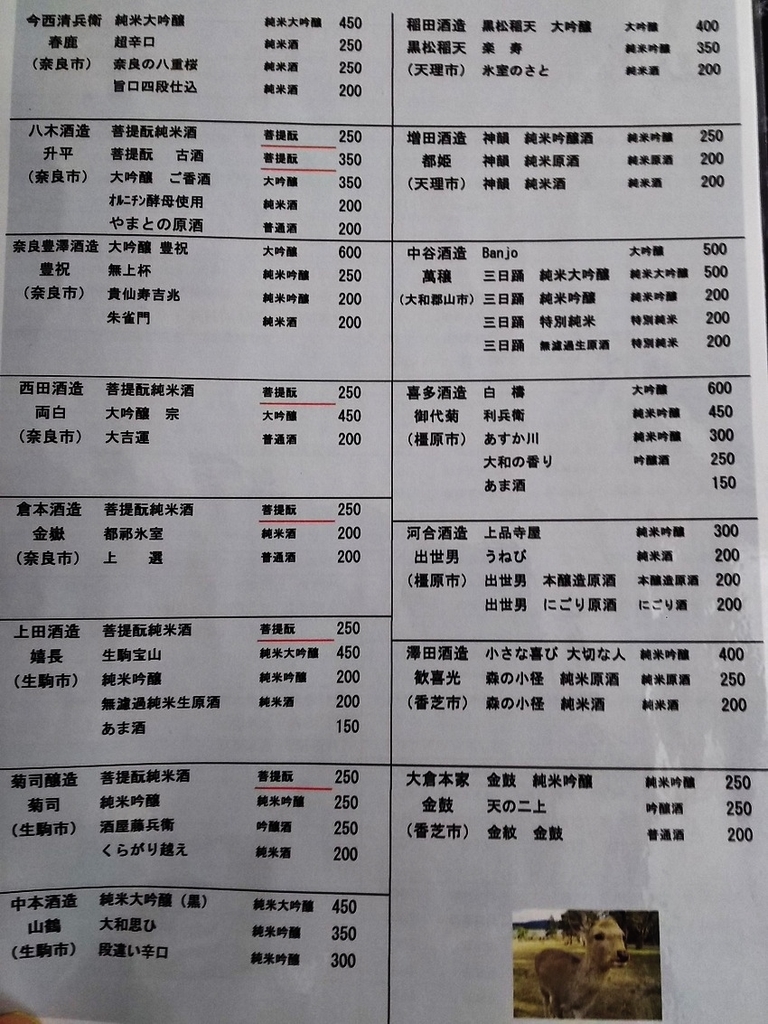 今西清兵衛 純米大吟醸 純米大吟醸 450
春鹿 超辛口 純米酒 250
(奈良市) 奈良の八重桜 純米酒 250
旨口四段仕込 純米酒 200
八木酒造 菩提酛純米酒 菩提酛 250
升平 菩提酛 古酒 菩提酛 350
(奈良市) 大吟醸 ご香酒 大吟醸 350
オルニチン酵母使用 純米酒 200
やまとの原酒 普通酒 200
奈良豊澤酒造 大吟醸 豊祝 大吟醸 600
豊祝 無上杯 純米吟醸 250
(奈良市) 貴仙寿吉兆 純米吟醸 200
朱雀門 純米酒 200
西田酒造 菩提酛純米酒 菩提酛 250
両白 大吟醸 宗 大吟醸 450
(奈良市) 大吉運 普通酒 200
倉本酒造 菩提酛純米酒 菩提酛 250
金嶽 都祁氷室 純米酒 200
(奈良市) 上 選 普通酒 200
上田酒造 菩提酛純米酒 菩提酛 250
嬉長 生駒宝山 純米大吟醸 450
(生駒市) 純米吟醸 純米吟醸 200
無濾過純米生原酒 純米酒 200
あま酒 150
菊司醸造 菩提酛純米酒 菩提酛 250
菊司 純米吟醸 純米吟醸 250
(生駒市) 酒屋藤兵衛 吟醸酒 250
くらがり越え 純米酒 200
中本酒造 純米大吟醸(黒) 純米大吟醸 450
山鶴 大和思ひ 純米吟醸 350
(生駒市) 段違い辛口 純米吟醸 300
稲田酒造 黒松稲天 大吟醸 大吟醸 400
黒松稲天 楽 寿 純米吟醸 350
(天理市) 氷室のさと 純米酒 200
増田酒造 神韻 純米吟醸酒 純米吟醸 250
都姫 神韻 純米原酒 純米原酒 200
(天理市) 神韻 純米酒 純米酒 200
中谷酒造 Banjo 大吟醸 500
萬穣 三日踊 純米大吟醸 純米大吟醸 500
(大和郡山市) 三日踊 純米吟醸 純米吟醸 200
三日踊 特別純米 特別純米 200
三日踊 無濾過生原酒 特別純米 200
喜多酒造 白 檮 大吟醸 600
御代菊 利兵衛 純米吟醸 450
(橿原市) あすか川 純米吟醸 300
大和の香り 吟醸酒 250
あま酒 150
河合酒造 上品寺屋 純米吟醸 300
出世男 うねび 純米酒 200
(橿原市) 出世男 本醸造原酒 本醸造原酒 200
出世男 にごり原酒 にごり酒 200
澤田酒造 小さな喜び 大切な人 純米吟醸 400
歓喜光 森の小径 純米原酒 純米原酒 250
(香芝市) 森の小径 純米酒 純米酒 200
大倉本家 金鼓 純米吟醸 純米吟醸 250
金鼓 天の二上 吟醸酒 250
(香芝市) 金紋 金鼓 普通酒 200